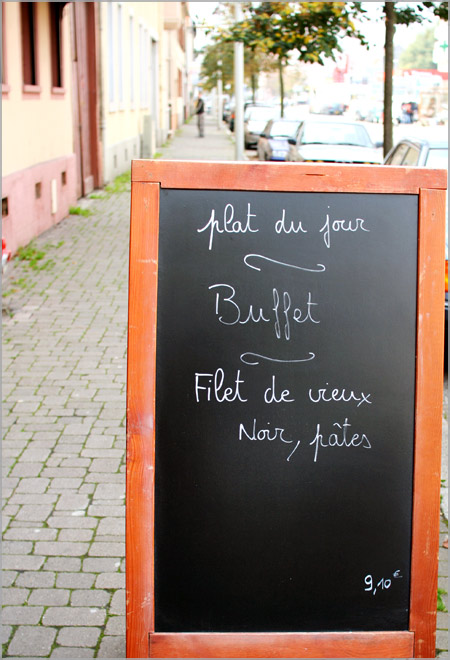 plat du jour
Buffet
Filet de vieux
Noir, pâtes
9,10€